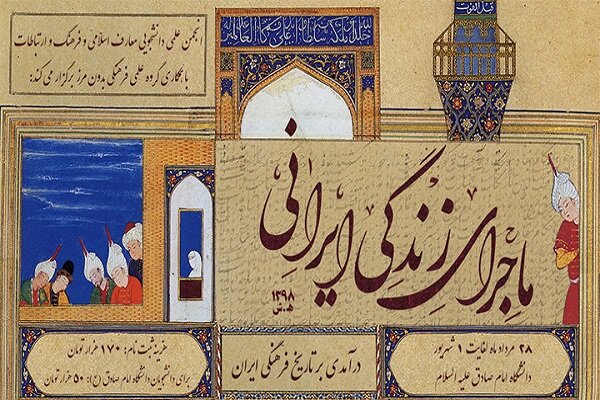 انجمن علمی دانشجویی معارف اسلامی و فرهنگ و ارتباطات
با همکاری گروه علمی فرهنگی بدون مرز برگزار می کند:
ماجرای زندگی ایرانی
۱۳۹۸
ه.ش
۲۸ مرداد ماه لغایت ۱ شهریور
دانشگاه امام صادق علیه السلام
درآمدی بر تاریخ فرهنگی ایران
هزینه ثبت نام: ۱۷۰ هزار تومان
برای دانشجویان دانشگاه امام صادق (ع): ۵۰ هزار تومان